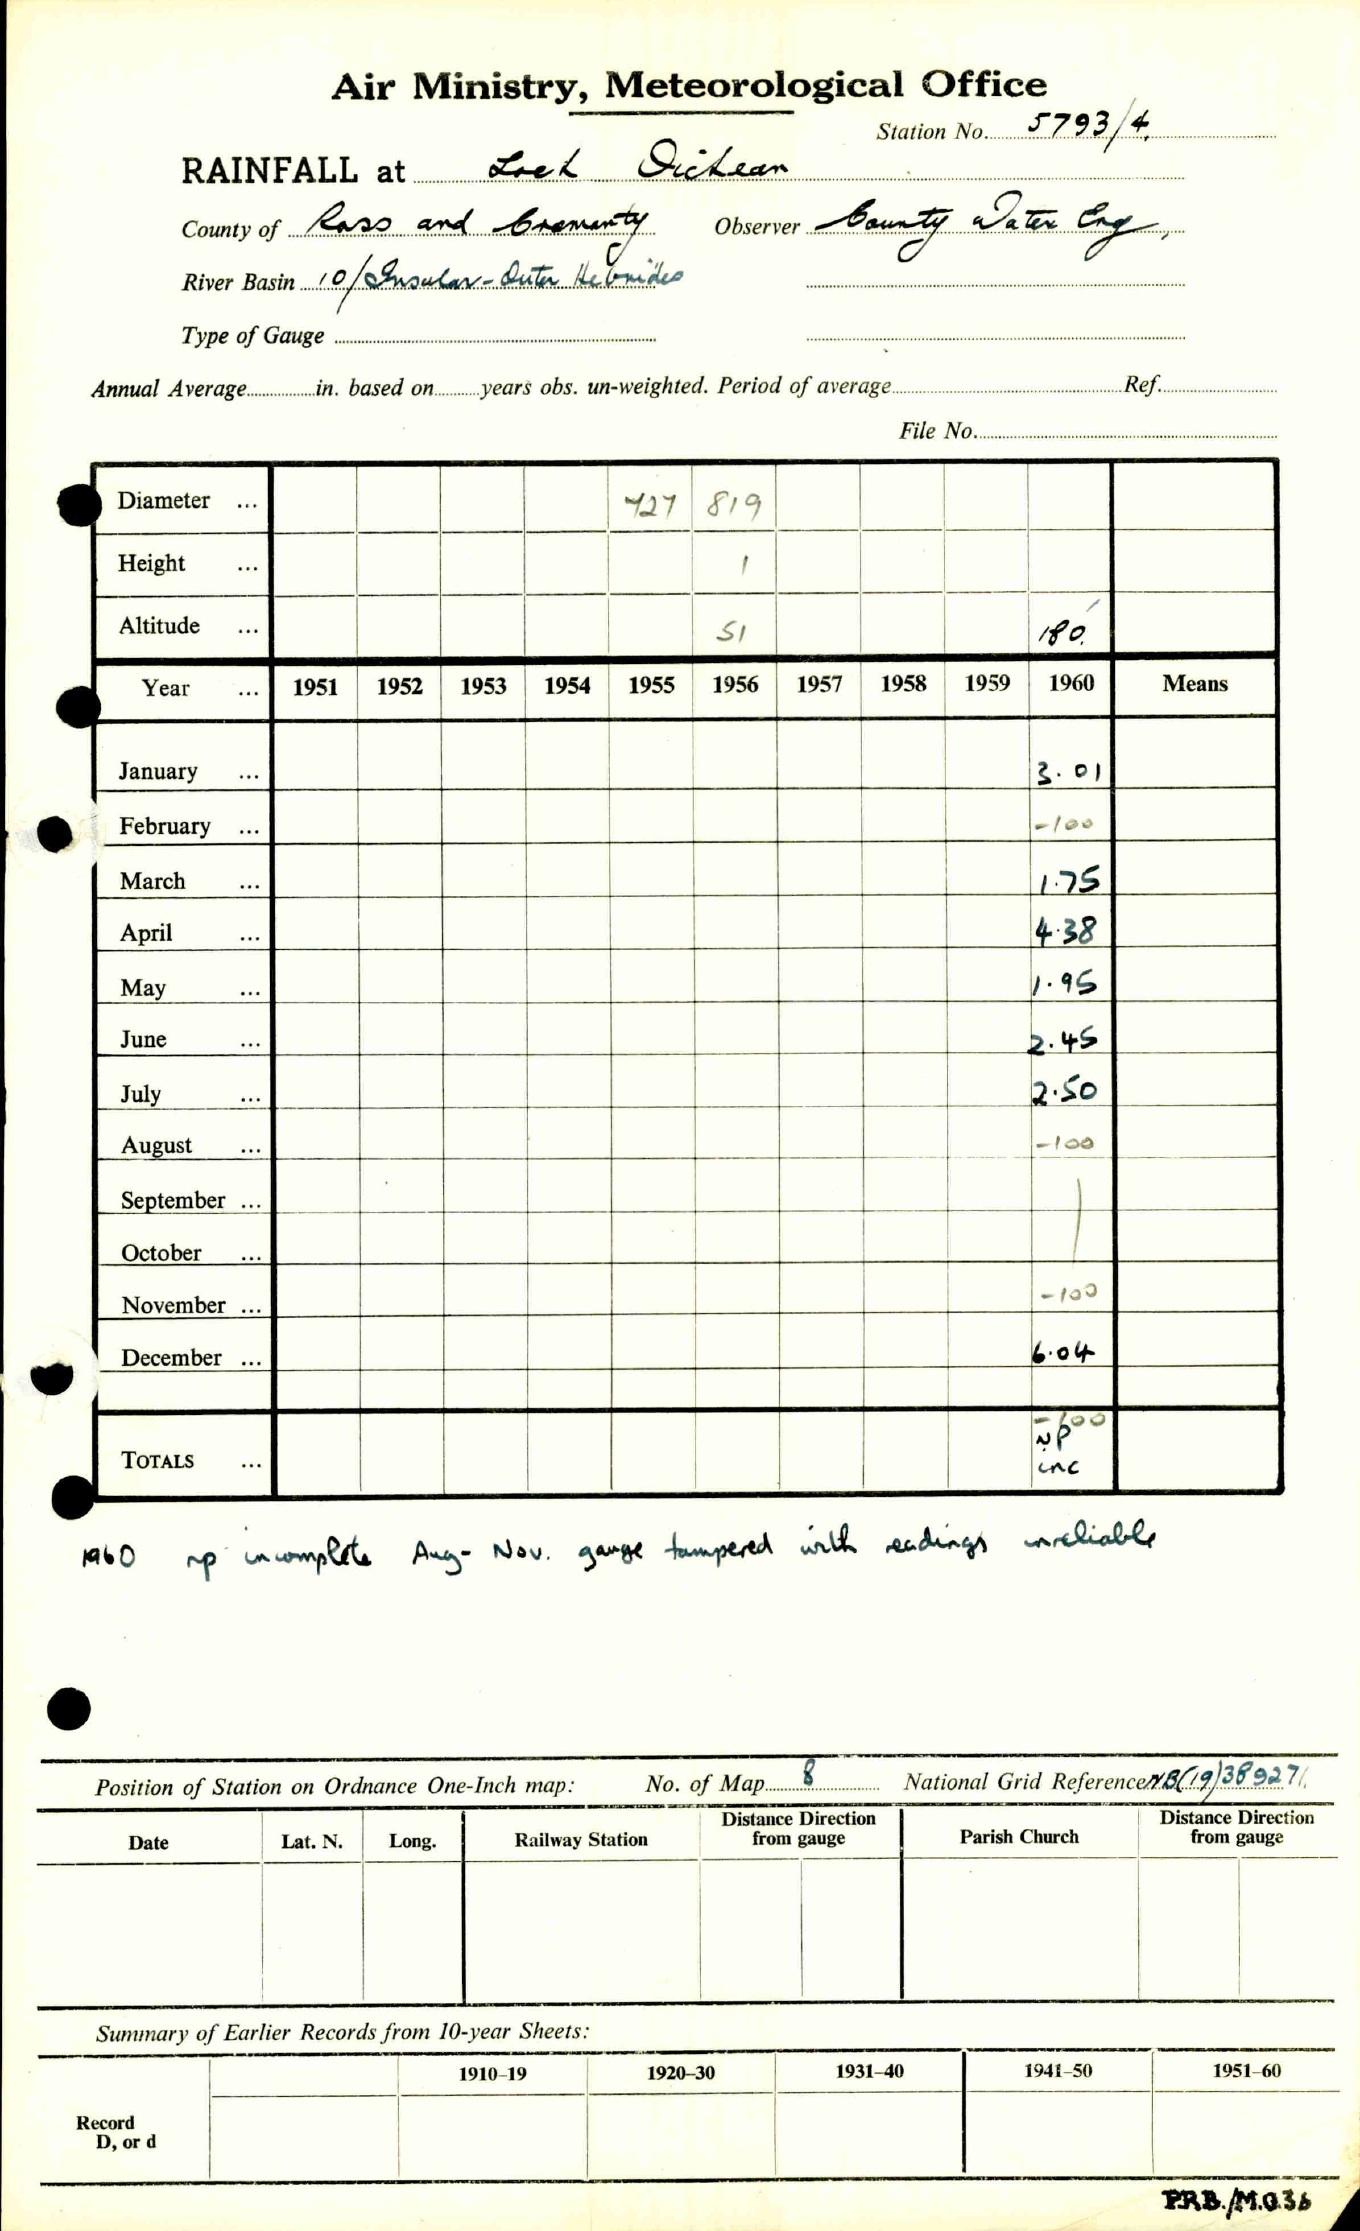 Air Ministry, Meteorological Office
Station No. 5793/4.
RAINFALL at Loch Oichean
County of Ross and Cromarty Observer County Water Eng,
River Basin 10/Insular-Outer Hebrides
Type of Gauge
Annual Average in. based on years obs. un-weighted. Period of average Ref.
File No.
Diameter ... 727 819
Height ... 1
Altitude ... 51 180'
Year ... 1951 1952 1953 1954 1955 1956 1957 1958 1959 1960 Means
January ... 3.01
February ... -100
March ... 1.75
April ... 4.38
May ... 1.95
June ... 2.45
July ... 2.50
August ... -100
September ...
October ...
November ... -100
December ... 6.04
-100
NP
TOTALS ... inc
1960 np incomplete Aug- Nov. gauge tampered with readings unreliable
Position of Station on Ordnance One-Inch map: No. of Map 8 National Grid Reference NB(19)389271
Date Lat. N. Long. Railway Station Distance Direction from gauge Parish Church Distance Direction from gauge
Summary of Earlier Records from 10-year Sheets:
1910-19 1920-30 1931-40 1941-50 1951-60
Record
D, or d
P.R.B./M.O.36